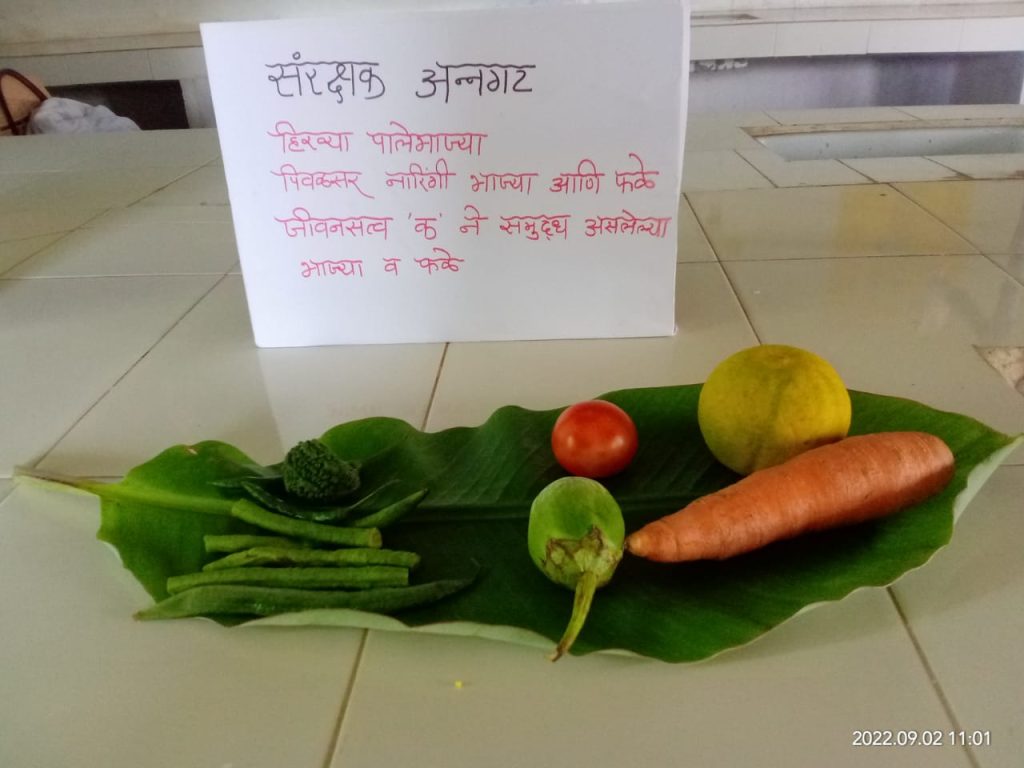 संरक्षक अन्नगट
हिरव्या पालेभाज्या
पिवळसर नारिंगी भाज्या आणि फळे
जीवनसत्व 'क' ने समुद्ध असलेल्या
भाज्या व फळे
2022.09.02 11:01